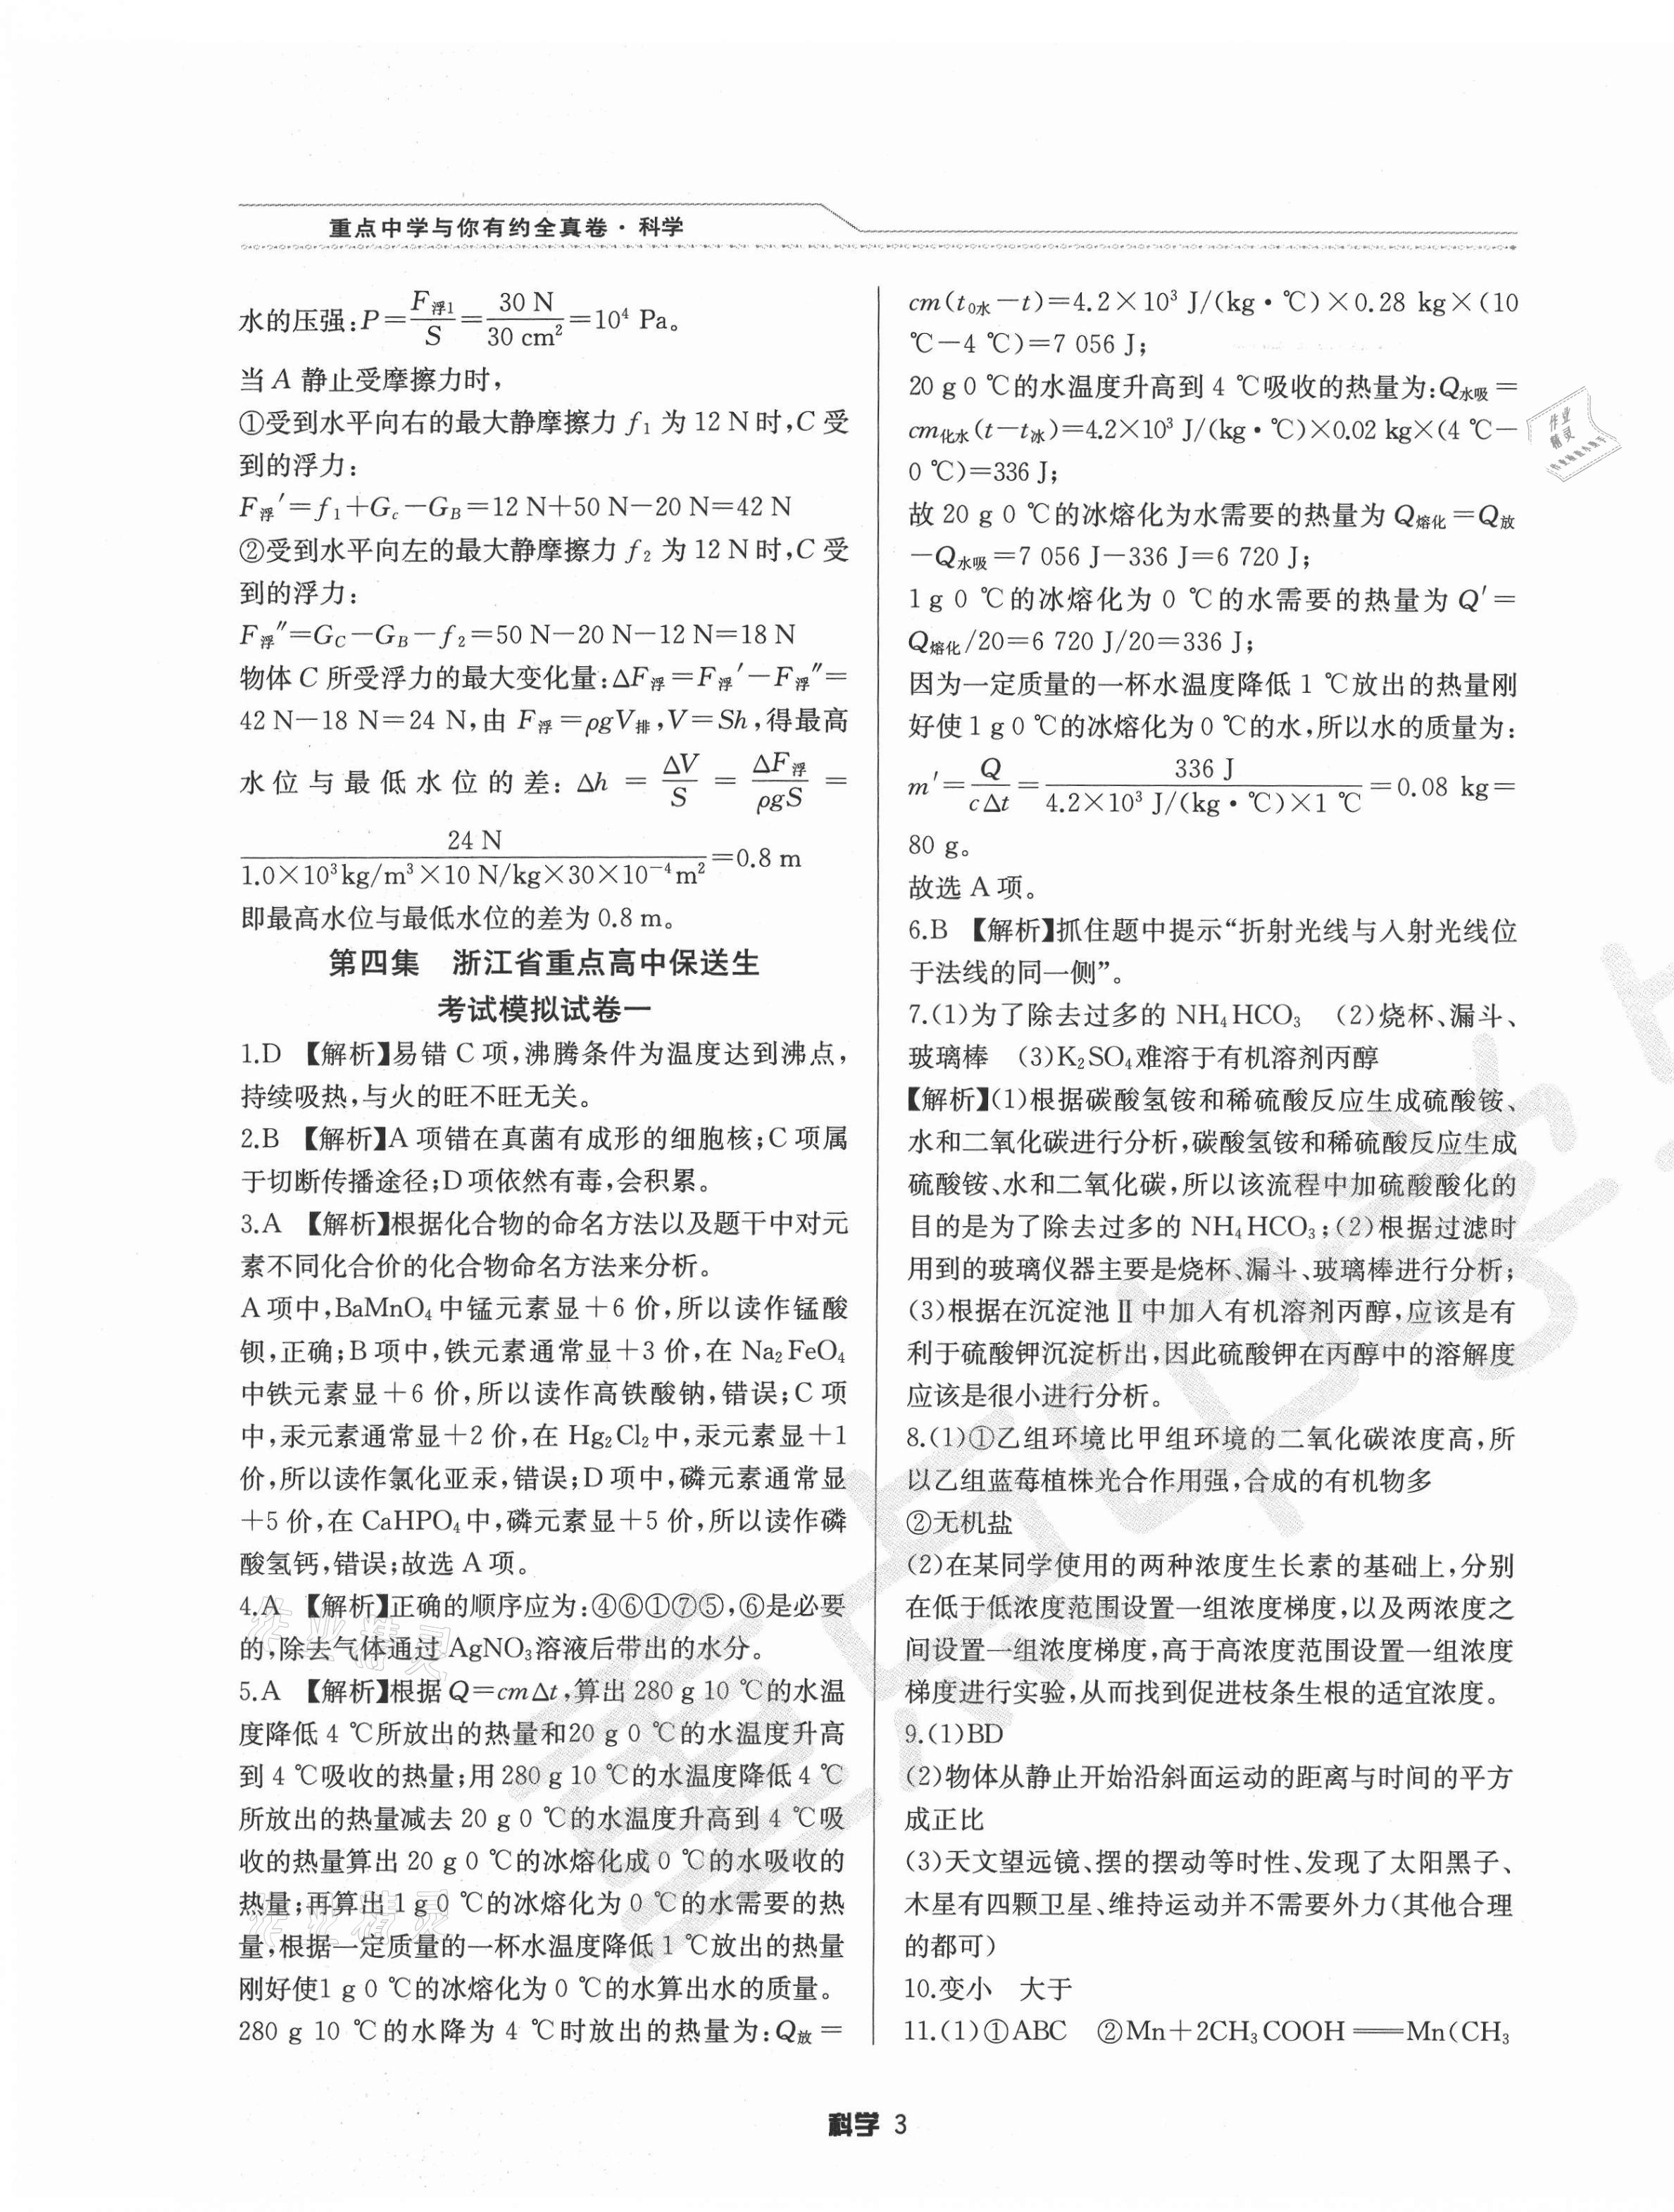 重点中学与你有约全真卷·科学
水的压强:P=F浮1/S=30 N/30 cm²=10⁴ Pa。
当 A 静止受摩擦力时,
①受到水平向右的最大静摩擦力 f₁ 为 12 N 时,C 受
到的浮力:
F浮′=f₁+Gc−GB=12 N+50 N−20 N=42 N
②受到水平向左的最大静摩擦力 f₂ 为 12 N 时,C 受
到的浮力:
F浮″=GC−GB−f₂=50 N−20 N−12 N=18 N
物体 C 所受浮力的最大变化量:△F浮=F浮′−F浮″=
42 N−18 N=24 N,由 F浮=ρgV排,V=Sh,得最高
水位与最低水位的差:△h=△V/S=△F浮/ρgS=
24 N/1.0×10³kg/m³×10 N/kg×30×10⁻⁴m²=0.8 m
即最高水位与最低水位的差为 0.8 m。
第四集 浙江省重点高中保送生
考试模拟试卷一
1.D 【解析】易错 C 项,沸腾条件为温度达到沸点,
持续吸热,与火的旺不旺无关。
2.B 【解析】A 项错在真菌有成形的细胞核;C 项属
于切断传播途径;D 项依然有毒,会积累。
3.A 【解析】根据化合物的命名方法以及题干中对元
素不同化合价的化合物命名方法来分析。
A 项中,BaMnO₄ 中锰元素显+6 价,所以读作锰酸
钡,正确;B 项中,铁元素通常显+3 价,在 Na₂FeO₄
中铁元素显+6 价,所以读作高铁酸钠,错误;C 项
中,汞元素通常显+2 价,在 Hg₂Cl₂ 中,汞元素显+1
价,所以读作氯化亚汞,错误;D 项中,磷元素通常显
+5 价,在 CaHPO₄ 中,磷元素显+5 价,所以读作磷
酸氢钙,错误;故选 A 项。
4.A 【解析】正确的顺序应为:④⑥①⑦⑤,⑥是必要
的,除去气体通过 AgNO₃ 溶液后带出的水分。
5.A 【解析】根据 Q=cm△t,算出 280 g 10 ℃的水温
度降低 4 ℃所放出的热量和20 g 0 ℃的水温度升高
到 4 ℃吸收的热量;用 280 g 10 ℃的水温度降低 4 ℃
所放出的热量减去 20 g 0 ℃的水温度升高到 4 ℃吸
收的热量算出 20 g 0 ℃的冰熔化成 0 ℃的水吸收的
热量;再算出 1 g 0 ℃的冰熔化为 0 ℃的水需要的热
量,根据一定质量的一杯水温度降低 1 ℃放出的热量
刚好使1 g 0 ℃的冰熔化为 0 ℃的水算出水的质量。
280 g 10 ℃的水降为 4 ℃时放出的热量为:Q放=
cm(t₀水−t)=4.2×10³ J/(kg·℃)×0.28 kg×(10
℃−4 ℃)=7 056 J;
20 g 0 ℃的水温度升高到 4 ℃吸收的热量为:Q水吸=
cm化水(t−t冰)=4.2×10³ J/(kg·℃)×0.02 kg×(4 ℃−
0 ℃)=336 J;
故 20 g 0 ℃的冰熔化为水需要的热量为 Q熔化=Q放
−Q水吸=7 056 J−336 J=6 720 J;
1 g 0 ℃的冰熔化为 0 ℃的水需要的热量为 Q′=
Q熔化/20=6 720 J/20=336 J;
因为一定质量的一杯水温度降低 1 ℃放出的热量刚
好使 1 g 0 ℃的冰熔化为 0 ℃的水,所以水的质量为:
m′=Q/c△t=336 J/4.2×10³ J/(kg·℃)×1 ℃=0.08 kg=
80 g。
故选 A 项。
6.B 【解析】抓住题中提示“折射光线与入射光线位
于法线的同一侧”。
7.(1)为了除去过多的 NH₄HCO₃ (2)烧杯、漏斗、
玻璃棒 (3)K₂SO₄ 难溶于有机溶剂丙醇
【解析】(1)根据碳酸氢铵和稀硫酸反应生成硫酸铵、
水和二氧化碳进行分析,碳酸氢铵和稀硫酸反应生成
硫酸铵、水和二氧化碳,所以该流程中加硫酸酸化的
目的是为了除去过多的 NH₄HCO₃;(2)根据过滤时
用到的玻璃仪器主要是烧杯、漏斗、玻璃棒进行分析;
(3)根据在沉淀池Ⅱ中加人有机溶剂丙醇,应该是有
利于硫酸钾沉淀析出,因此硫酸钾在丙醇中的溶解度
应该是很小进行分析。
8.(1)①乙组环境比甲组环境的二氧化碳浓度高,所
以乙组蓝莓植株光合作用强,合成的有机物多
②无机盐
(2)在某同学使用的两种浓度生长素的基础上,分别
在低于低浓度范围设置一组浓度梯度,以及两浓度之
间设置一组浓度梯度,高于高浓度范围设置一组浓度
梯度进行实验,从而找到促进枝条生根的适宜浓度。
9.(1)BD
(2)物体从静止开始沿斜面运动的距离与时间的平方
成正比
(3)天文望远镜、摆的摆动等时性、发现了太阳黑子、
木星有四颗卫星、维持运动并不需要外力(其他合理
的都可)
10.变小 大于
11.(1)①ABC ②Mn+2CH₃COOH══Mn(CH₃
科学 3
作业
精灵
作业精灵
作业精灵
重点中学